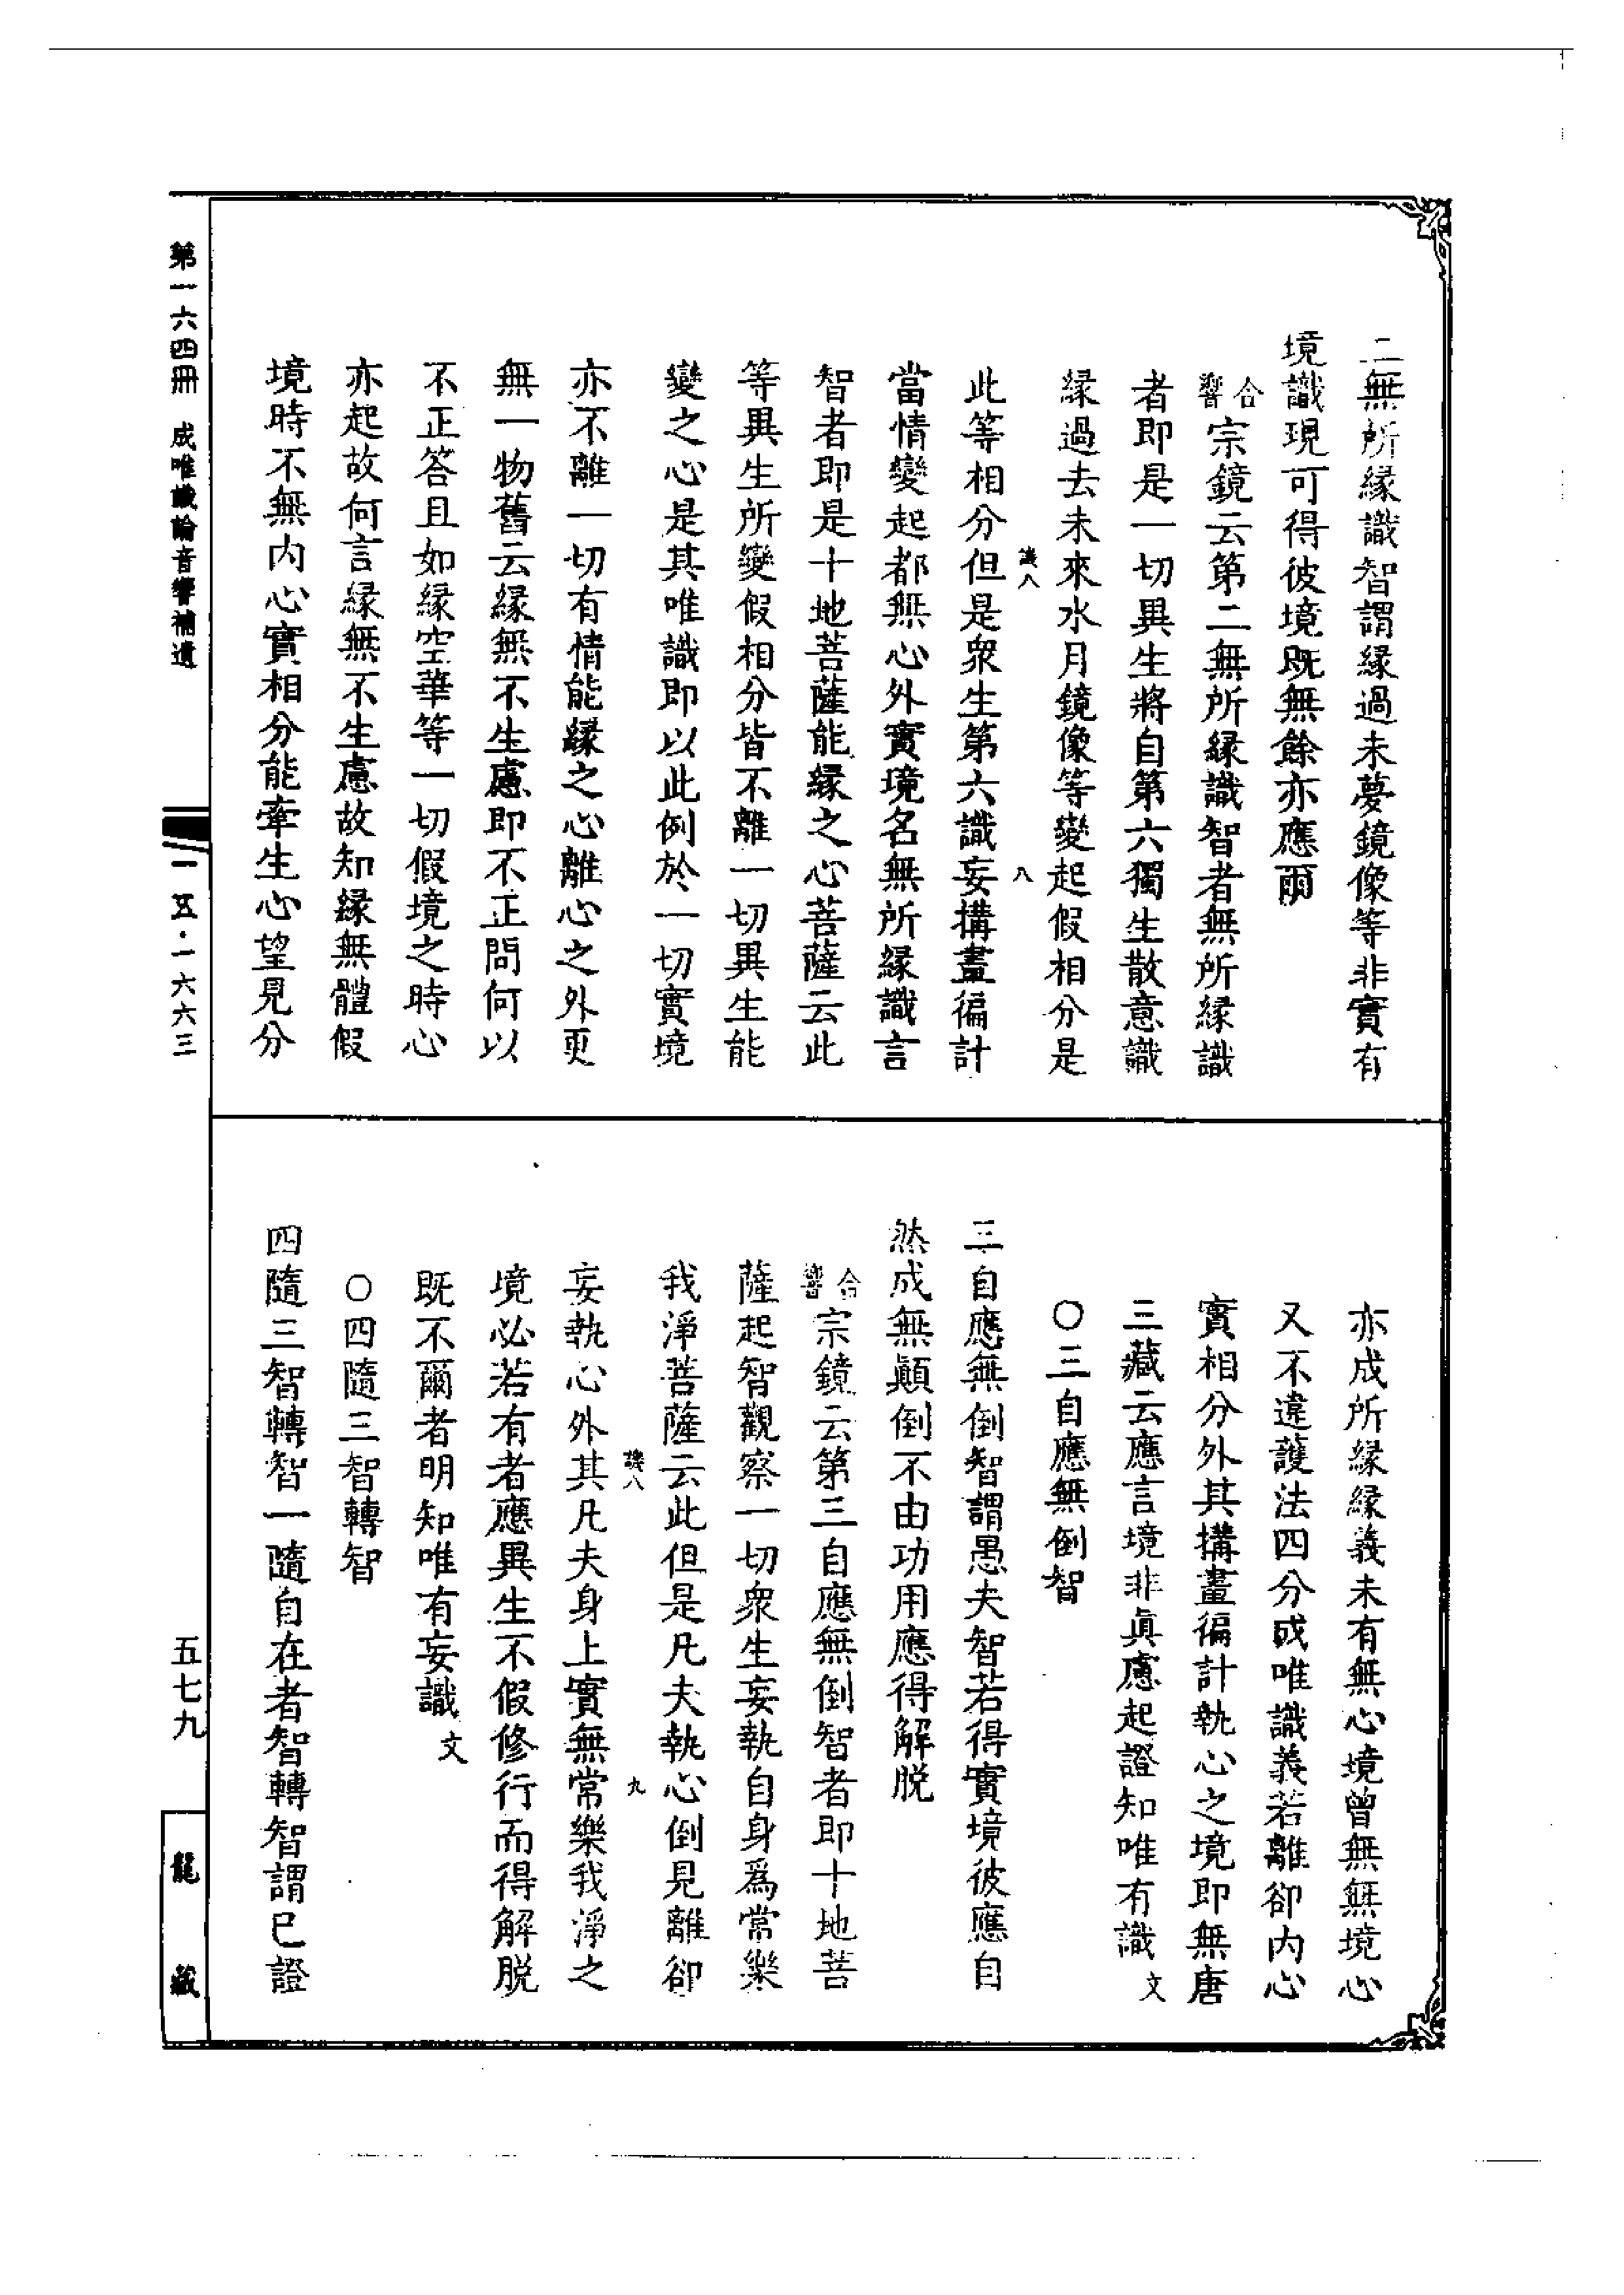 二無所緣識智謂緣過未夢鏡像等非實有
境識現可得彼境既無餘亦應爾
合響宗鏡云第二無所緣識智者無所緣識
者即是一切異生將自第六獨生散意識
緣過去未來水月鏡像等變起假相分是
譏八
八
此等相分但是衆生第六識妄搆畫徧計
當情變起都無心外實境名無所緣識言
智者即是十地菩薩能緣之心菩薩云此
等異生所變假相分皆不離一切異生能
變之心是其唯識即以此例於一切實境
亦不離一切有情能緣之心離心之外更
無一物舊云緣無不生慮即不正問何以
不正答且如緣空華等一切假境之時心
亦起故何言緣無不生慮故知緣無體假
境時不無內心實相分能牽生心望見分
亦成所緣緣義未有無心境曾無無境心
又不違護法四分成唯識義若離卻內心
實相分外其搆畫徧計執心之境即無唐
三藏云應言境非眞慮起證知唯有識文
〇三自應無倒智
三自應無倒智謂愚夫智若得實境彼應自
然成無顚倒不由功用應得解脱
合響宗鏡云第三自應無倒智者即十地菩
薩起智觀察一切衆生妄執自身爲常樂
我淨菩薩云此但是凡夫執心倒見離卻
譏八
九
妄執心外其凡夫身上實無常樂我淨之
境必若有者應異生不假修行而得解脱
既不爾者明知唯有妄識文
〇四隨三智轉智
四隨三智轉智一隨自在者智轉智謂已證
第一六四冊 成唯識論音響補遺
一五·一六六三
五七九
龍藏